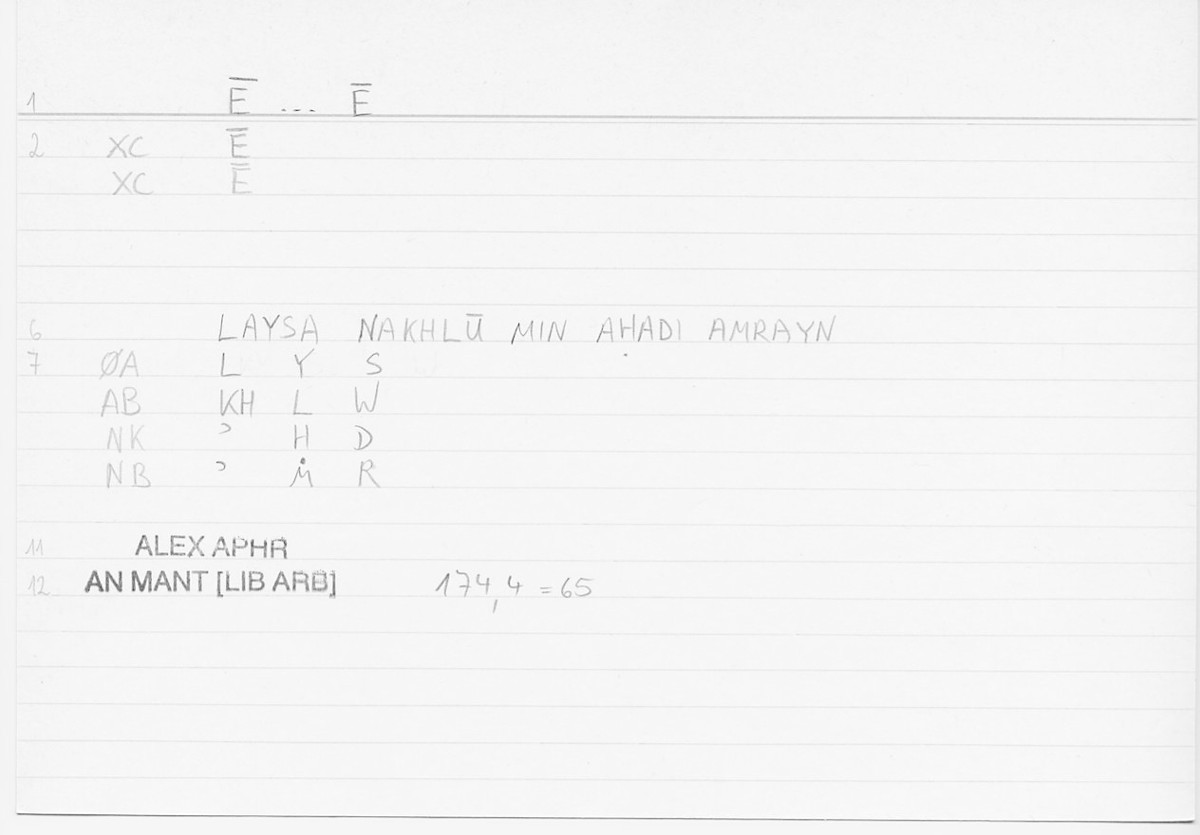 1 Ē ... Ē
2 XC Ē
XC Ē
6 LAYSA NAKHLŪ MIN AḤADI AMRAYN
7 ØA L Y S
AB KH L W
NK ʾ H D
NB ʾ Ṁ R
11 ALEX APHR
12 AN MANT [LIB ARB] 174,4 = 65